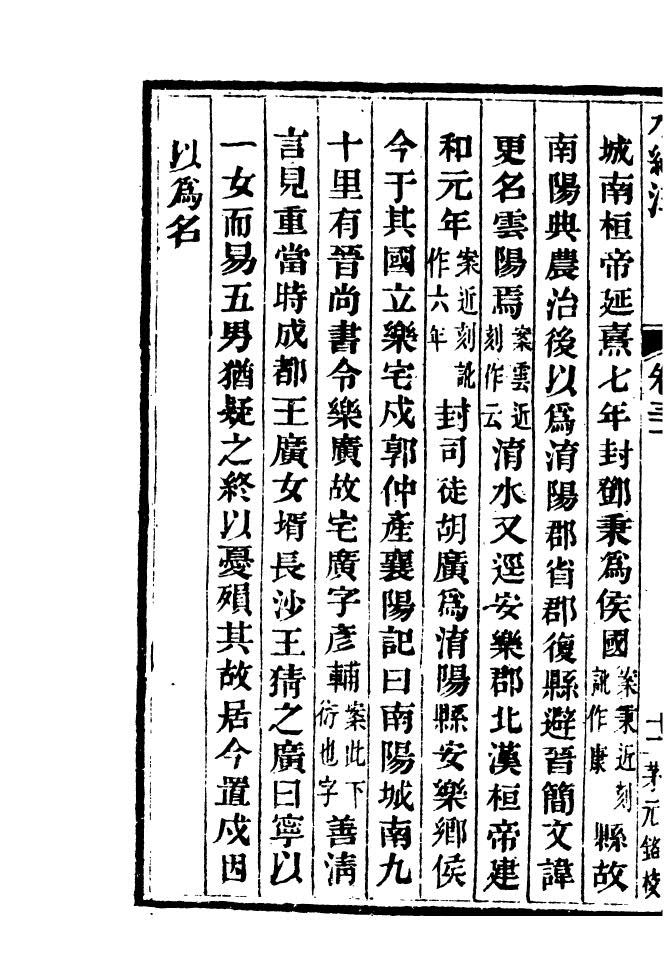 水經注 卷三十一 十一 茅元銘校
城南桓帝延熹七年封鄧秉爲侯國案秉近刻訛作康縣故
南陽典農治後以爲淯陽郡省郡復縣避晉簡文諱
更名雲陽焉案雲近刻作云淯水又逕安樂郡北漢桓帝建
和元年案近刻訛作六年封司徒胡廣爲淯陽縣安樂鄉侯
今于其國立樂宅戍郭仲產襄陽記曰南陽城南九
十里有晉尚書令樂廣故宅廣字彥輔案此下衍也字善淸
言見重當時成都王廣女壻長沙王猜之廣曰寧以
一女而易五男猶疑之終以憂殞其故居今置戍因
以爲名